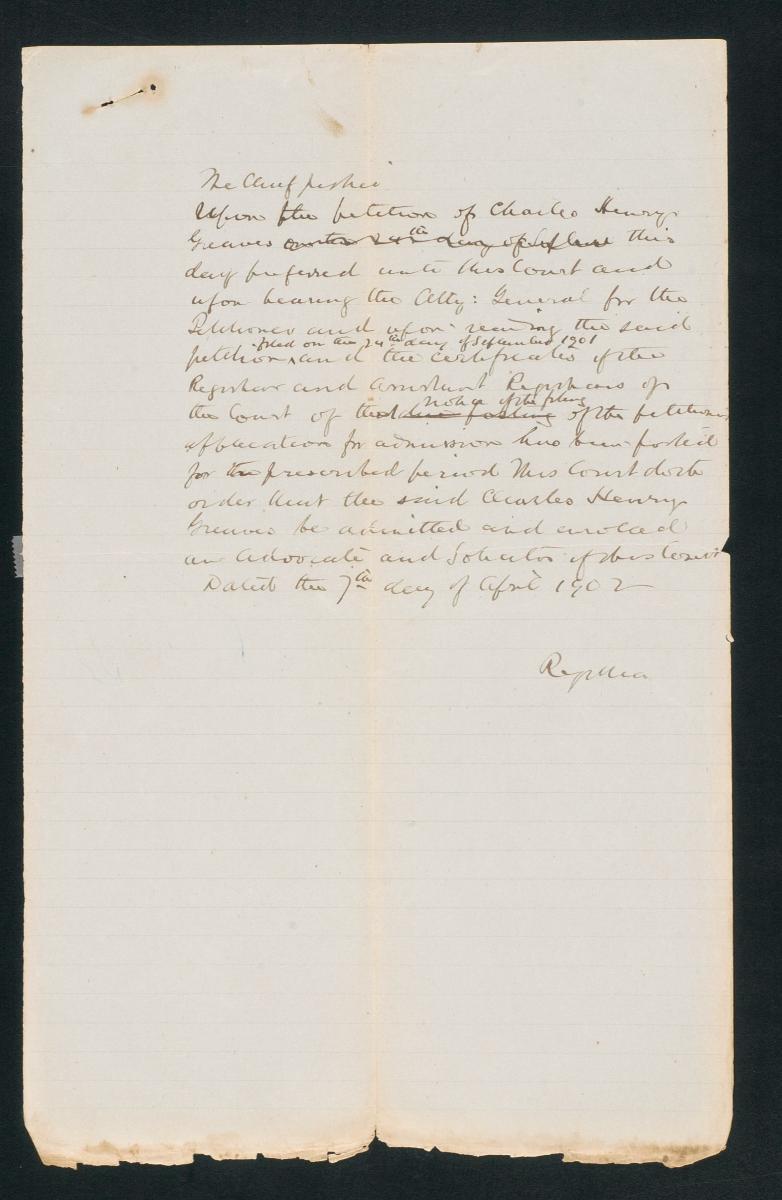 The Chief Justice
Upon the petition of Charles Henry
Greaves on the 24th day of September this
day preferred unto this Court and
upon hearing the Atty: General for the
Petitioner and upon reading the said
filed on the 24th day of September 1901
petition and the certificates of the
Registrar and Assistant Registrars of
notice of the filing
the Court of that due posting of the petitioners
application for admission has been posted
for the prescribed period This Court doth
order that the said Charles Henry
Greaves be admitted and enrolled
an Advocate and Solicitor of this Court
Dated the 7th day of April 1902
Registrar